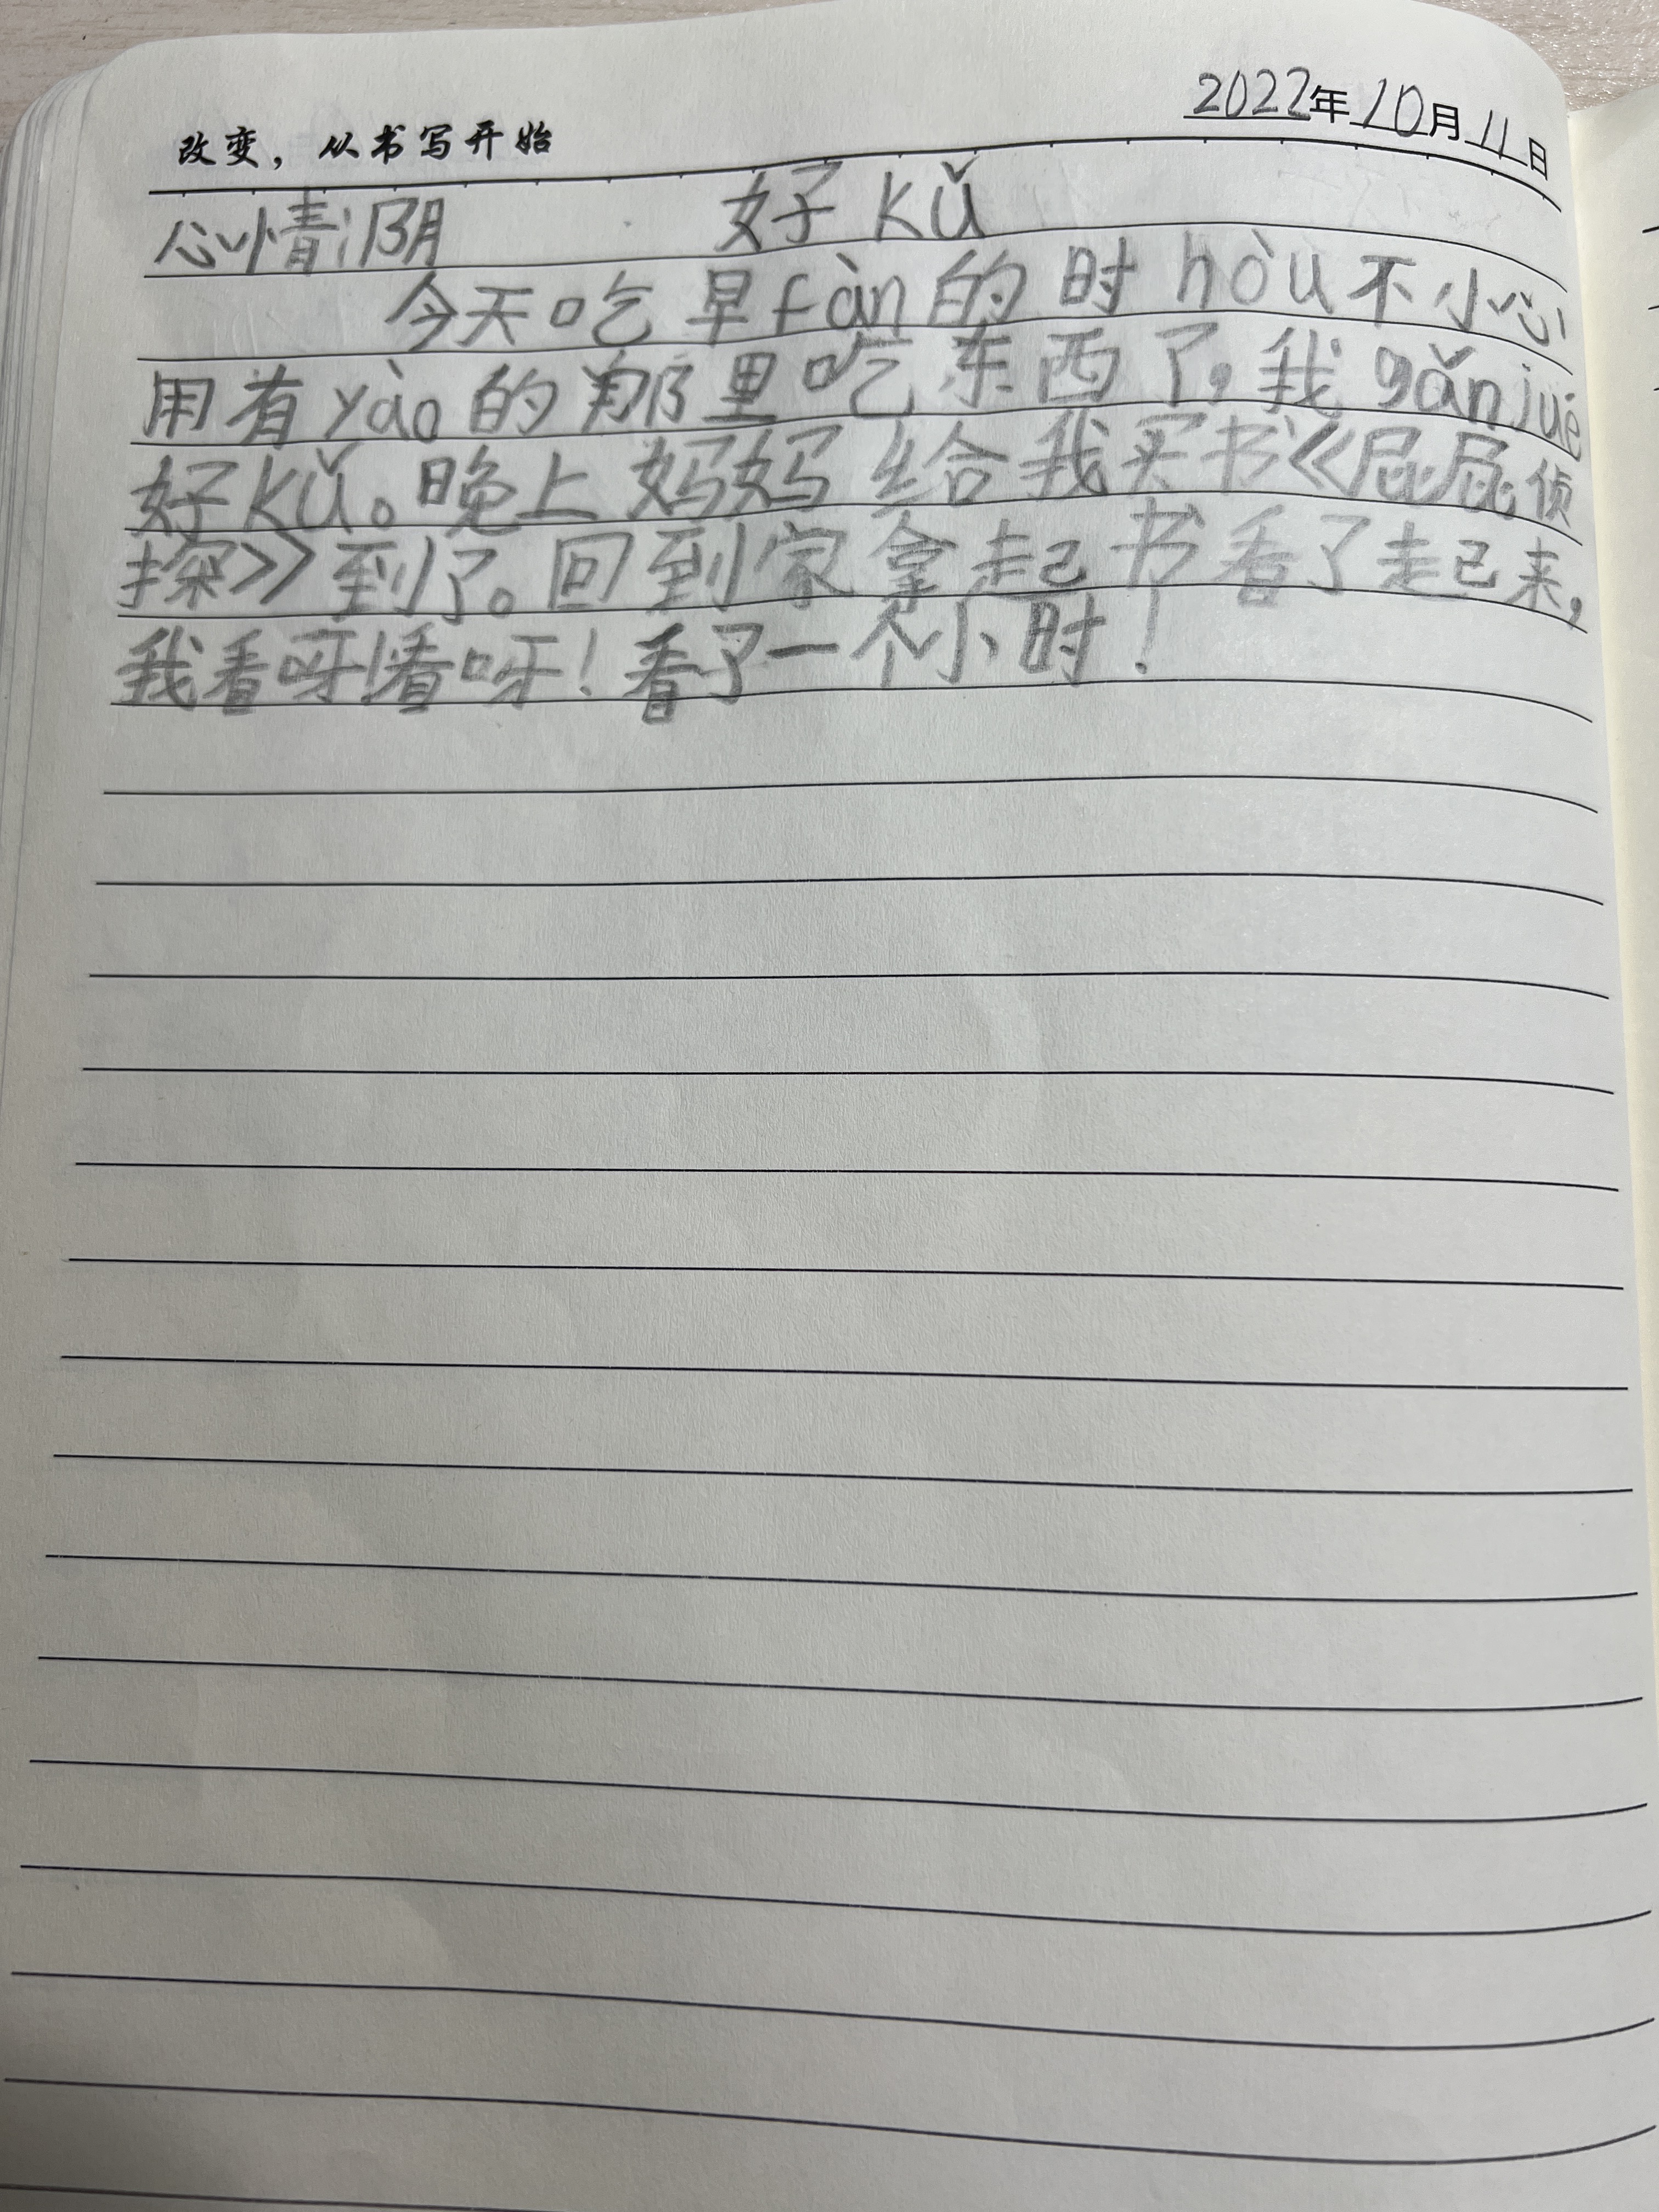 2022年10月11日
改变，从书写开始
心情:阴 好kǔ
今天吃早fàn的时hòu不小心
用有yào的那里吃东西了,我gǎnjué
好kǔ。晚上妈妈给我买书《屁屁侦
探》到了。回到家拿起书看了起来,
我看呀!看呀!看了一个小时!